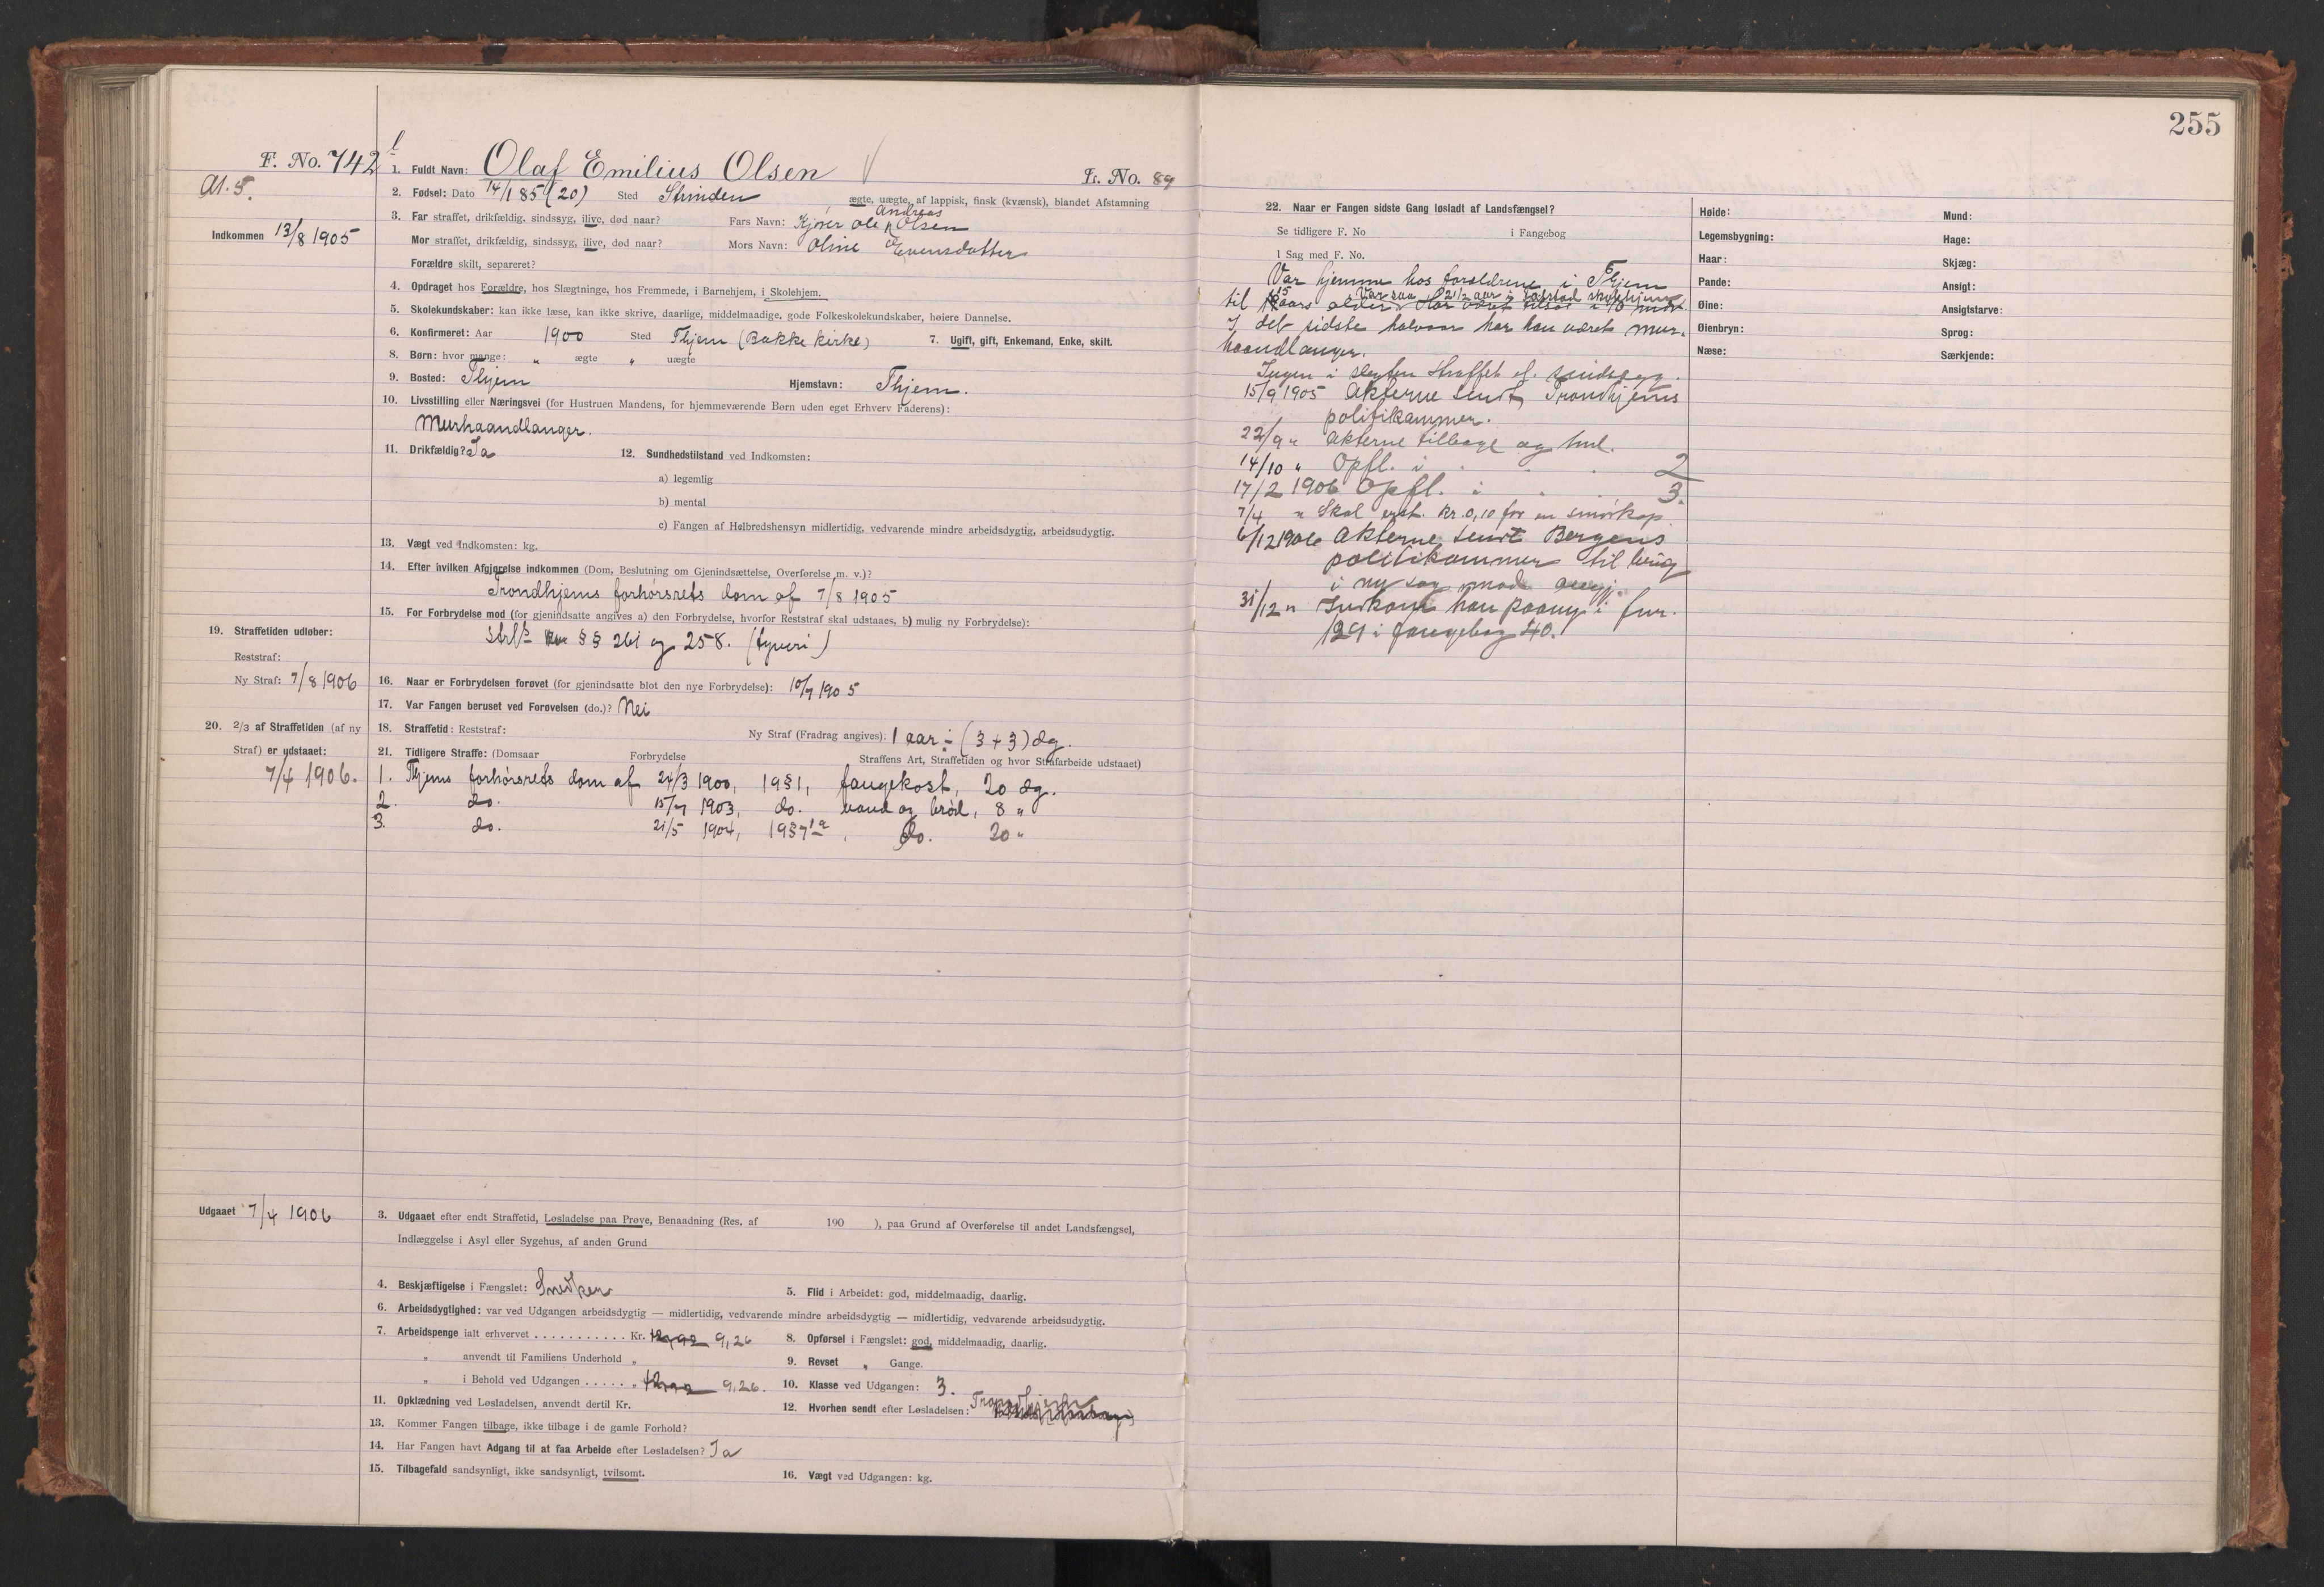 255
F. No. 742
1. Fuldt Navn: Olaf Emilius Olsen
Fr. No. 89
At. 5.
2. Fødsel: Dato 14/1 85 (20) Sted Strinden ægte, uægte, af lappisk, finsk (kvænsk), blandet Afstamning
Indkommen 13/8 1905
3. Far straffet, drikfældig, sindssyg, ilive, død naar? Fars Navn: Kjører Ole Andreas Olsen
Mor straffet, drikfældig, sindssyg, ilive, død naar? Mors Navn: Oline Evensdatter
Forældre skilt, separeret?
4. Opdraget hos Forældre, hos Slægtninge, hos Fremmede, i Barnehjem, i Skolehjem.
5. Skolekundskaber: kan ikke læse, kan ikke skrive, daarlige, middelmaadige, gode Folkeskolekundskaber, høiere Dannelse.
6. Konfirmeret: Aar 1900 Sted Thjem (Bakke kirke) 7. Ugift, gift, Enkemand, Enke, skilt.
8. Børn: hvor mange: " ægte " uægte
9. Bosted: Thjem Hjemstavn: Thjem.
10. Livsstilling eller Næringsvei (for Hustruen Mandens, for hjemmeværende Børn uden eget Erhverv Faderens):
Murhaandlanger.
11. Drikfældig? Ja 12. Sundhedstilstand ved Indkomsten:
a) legemlig
b) mental
c) Fangen af Helbredshensyn midlertidig, vedvarende mindre arbeidsdygtig, arbeidsudygtig.
13. Vægt ved Indkomsten: kg.
14. Efter hvilken Afgjørelse indkommen (Dom, Beslutning om Gjenindsættelse, Overførelse m. v.)?
Trondhjems forhørsrets dom af 7/8 1905
15. For Forbrydelse mod (for gjenindsatte angives a) den Forbrydelse, hvorfor Reststraf skal udstaaes, b) mulig ny Forbrydelse):
§§ 261 og 258. (tyveri)
19. Straffetiden udløber:
Reststraf:
Ny Straf: 7/8 1906
16. Naar er Forbrydelsen forøvet (for gjenindsatte blot den nye Forbrydelse): 10/7 1905
17. Var Fangen beruset ved Forøvelsen (do.)? Nei
20. 2/3 af Straffetiden (af ny
Straf) er udstaaet:
7/4 1906.
18. Straffetid: Reststraf: Ny Straf (Fradrag angives): 1 aar ÷ (3 + 3) dg.
21. Tidligere Straffe: (Domsaar Forbrydelse Straffens Art, Straffetiden og hvor Strafarbeide udstaaet)
1. Thjems forhørsrets dom af 24/3 1900, 19§1, fangekost, 20 dg.
2. do. 15/7 1903, do. vand og brød, 8 "
3. do. 21/5 1904, 19§7 1a, do. 20 "
Udgaaet 7/4 1906
3. Udgaaet efter endt Straffetid, Løsladelse paa Prøve, Benaadning (Res. af 190 ), paa Grund af Overførelse til andet Landsfængsel,
Indlæggelse i Asyl eller Sygehus, af anden Grund
4. Beskjæftigelse i Fængslet: Snedker 5. Flid i Arbeidet: god, middelmaadig, daarlig.
6. Arbeidsdygtighed: var ved Udgangen arbeidsdygtig — midlertidig, vedvarende mindre arbeidsdygtig — midlertidig, vedvarende arbeidsudygtig.
7. Arbeidspenge ialt erhvervet . . . . . . . . . . . Kr. 9,26 8. Opførsel i Fængslet: god, middelmaadig, daarlig.
" anvendt til Familiens Underhold " 9. Revset " Gange.
" i Behold ved Udgangen . . . . . " 9,26. 10. Klasse ved Udgangen: 3.
11. Opklædning ved Løsladelsen, anvendt dertil Kr. 12. Hvorhen sendt efter Løsladelsen: Trondhjem
13. Kommer Fangen tilbage, ikke tilbage i de gamle Forhold?
14. Har Fangen havt Adgang til at faa Arbeide efter Løsladelsen? Ja
15. Tilbagefald sandsynligt, ikke sandsynligt, tvilsomt. 16. Vægt ved Udgangen: kg.
22. Naar er Fangen sidste Gang løsladt af Landsfængsel?
Se tidligere F. No i Fangebog
I Sag med F. No.
Var hjemme hos forældrene i Thjem
til 15 aars alder. Var saa 2 1/2 aar i skolehjem.
I det sidste halvaar har han været mur-
haandlanger.
Ingen i slegten straffet el. sindssyg.
15/9 1905 Akterne sendt Trondhjems
politikammer.
22/9 " Akterne tilbage og
14/10 " Opfl. i . . . 2
17/2 1906 Opfl. i . . 3.
7/4 " Skal erst. kr. 0,10 for en smørkop.
6/12 1906 Akterne sendt Bergens
politikammer til brug
i ny sag mod
31/12 " Indkom han paany i fnr.
129 i fangebog 40.
Høide:
Legemsbygning:
Haar:
Pande:
Øine:
Øienbryn:
Næse:
Mund:
Hage:
Skjæg:
Ansigt:
Ansigtstarve:
Sprog:
Særkjende: